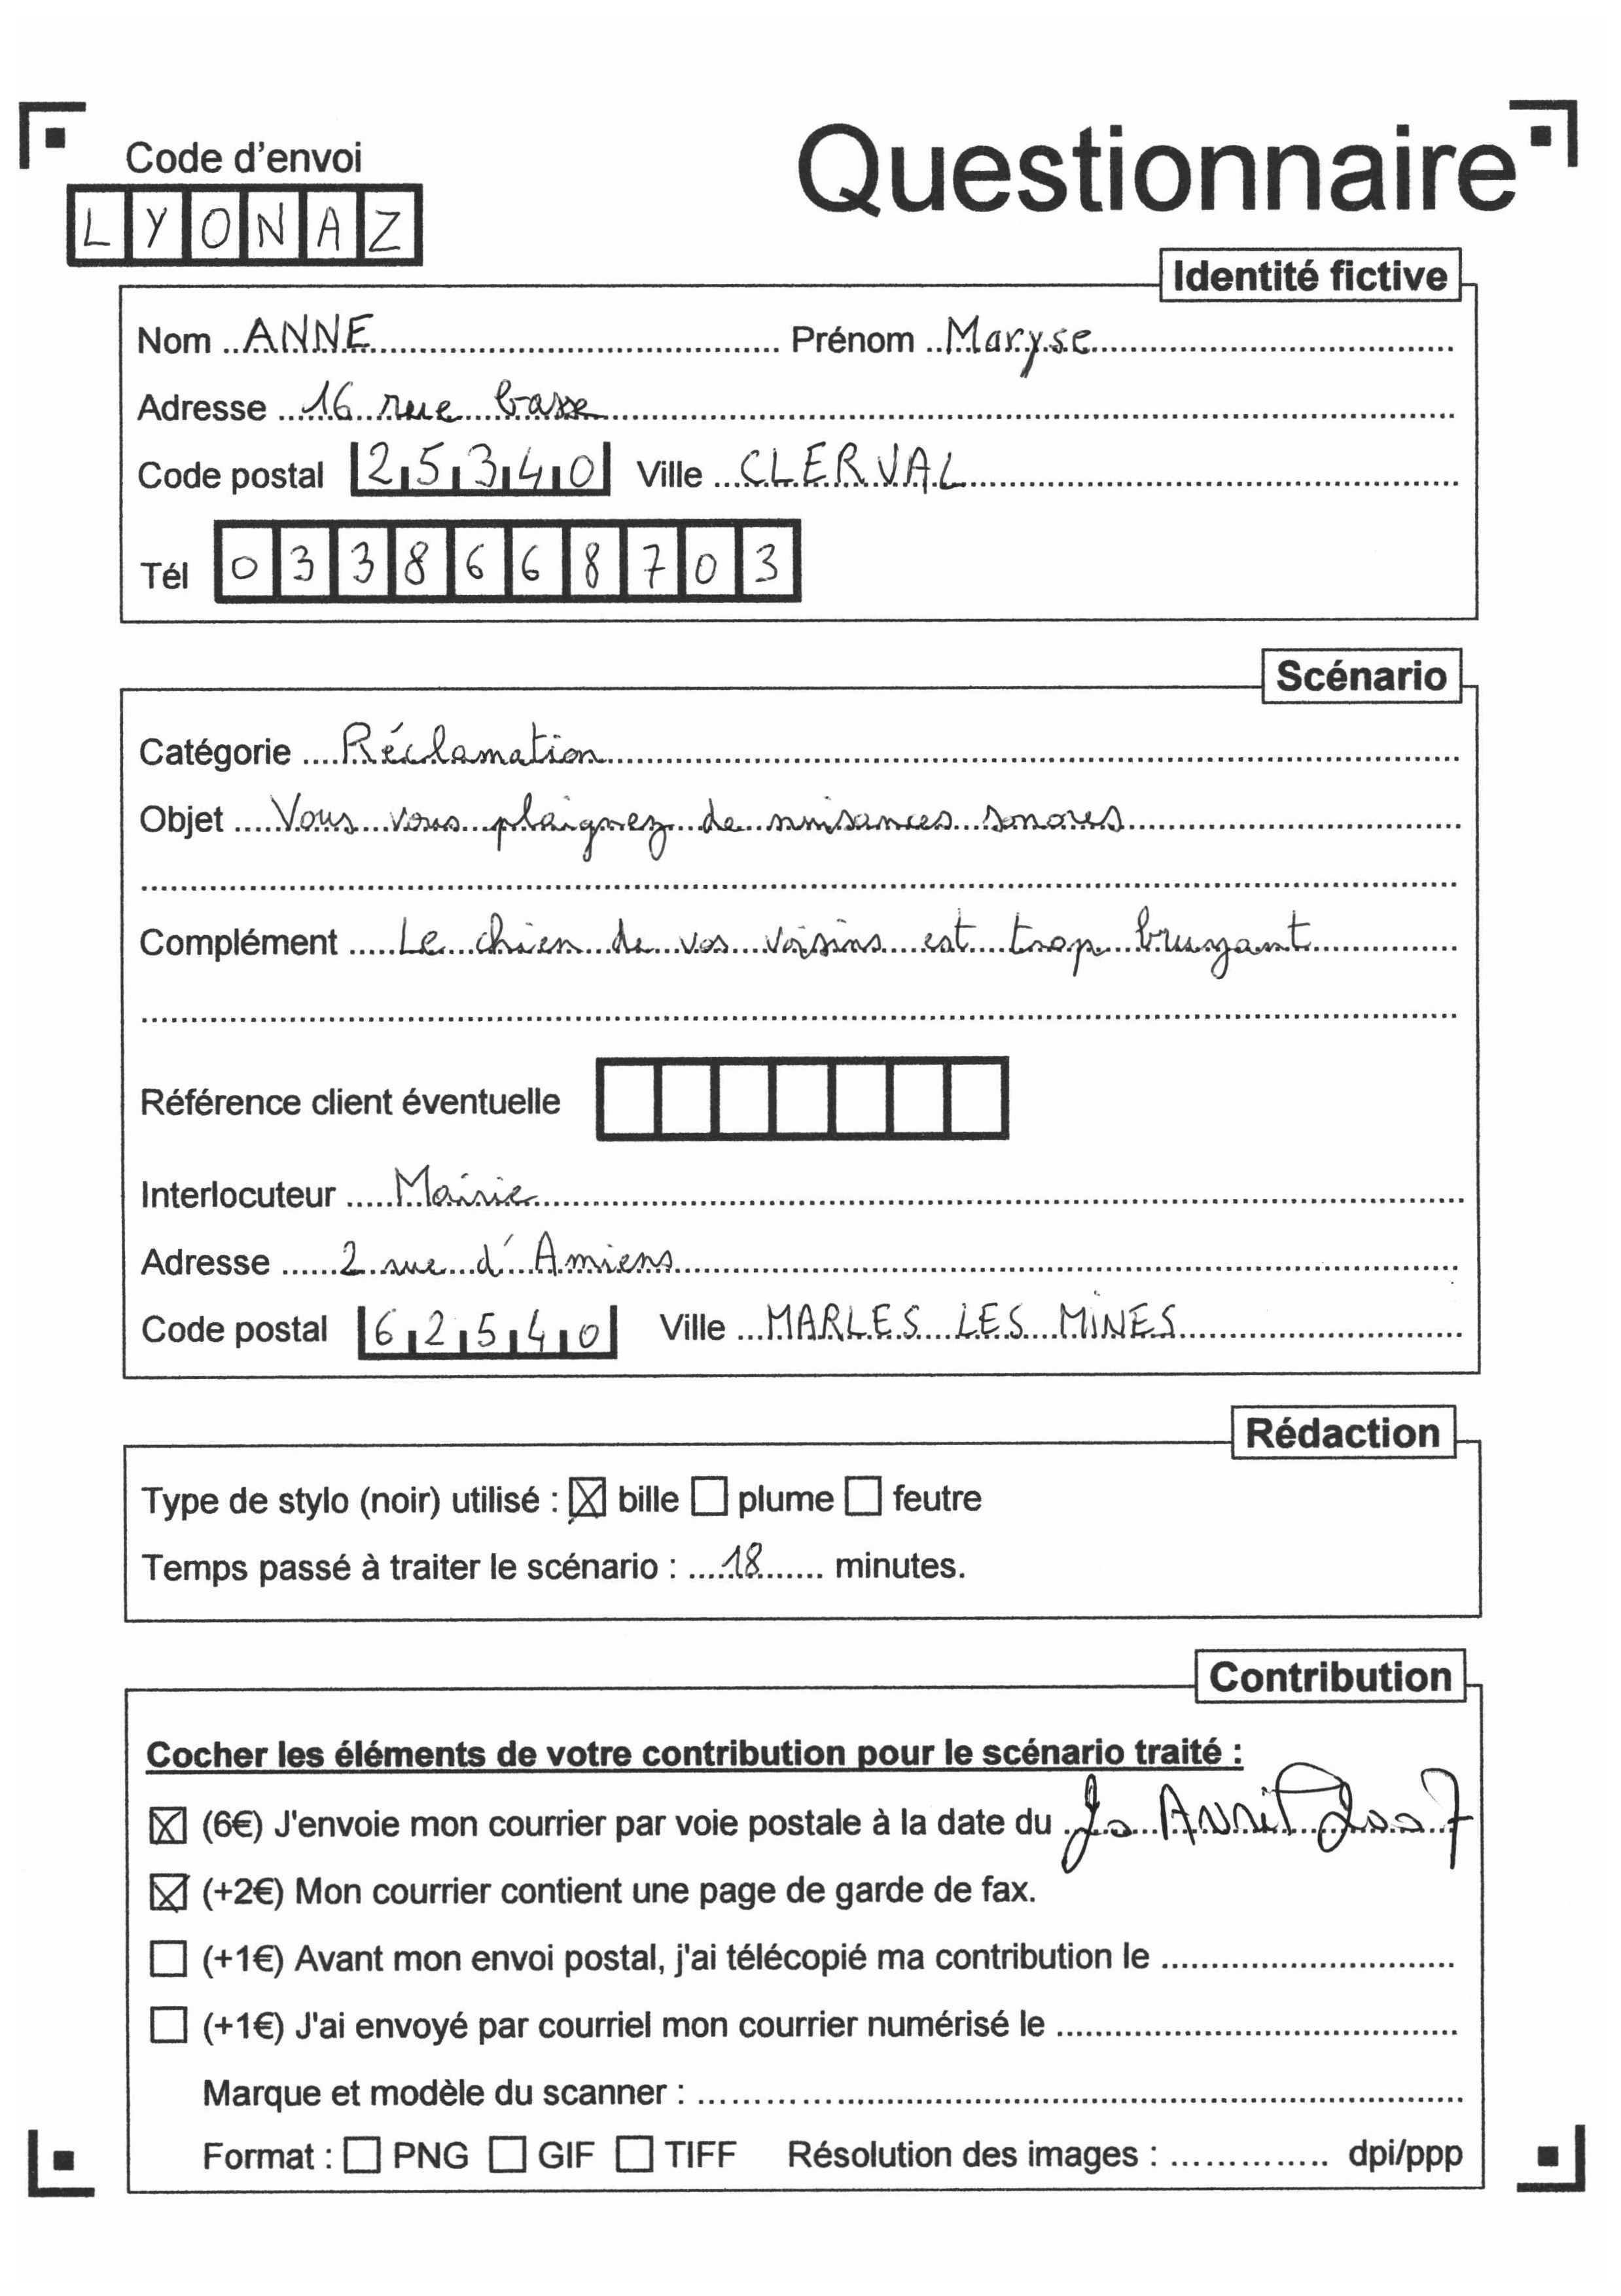 Code d'envoi
Questionnaire
LYONAZ
Identité fictive
Nom ANNE Prénom Maryse
Adresse 16 rue basse
Code postal 25340 Ville CLERVAL
Tél 0338668703
Scénario
Catégorie Réclamation
Objet Vous vous plaignez de nuisances sonores
Complément Le chien de vos voisins est trop bruyant
Référence client éventuelle
Interlocuteur Mairie
Adresse 2 rue d'Amiens
Code postal 62540 Ville MARLES LES MINES
Rédaction
Type de stylo (noir) utilisé : ☒ bille ☐ plume ☐ feutre
Temps passé à traiter le scénario : 18 minutes.
Contribution
Cocher les éléments de votre contribution pour le scénario traité :
☒ (6€) J'envoie mon courrier par voie postale à la date du 2007
☒ (+2€) Mon courrier contient une page de garde de fax.
☐ (+1€) Avant mon envoi postal, j'ai télécopié ma contribution le
☐ (+1€) J'ai envoyé par courriel mon courrier numérisé le
Marque et modèle du scanner :
Format : ☐ PNG ☐ GIF ☐ TIFF Résolution des images : dpi/ppp